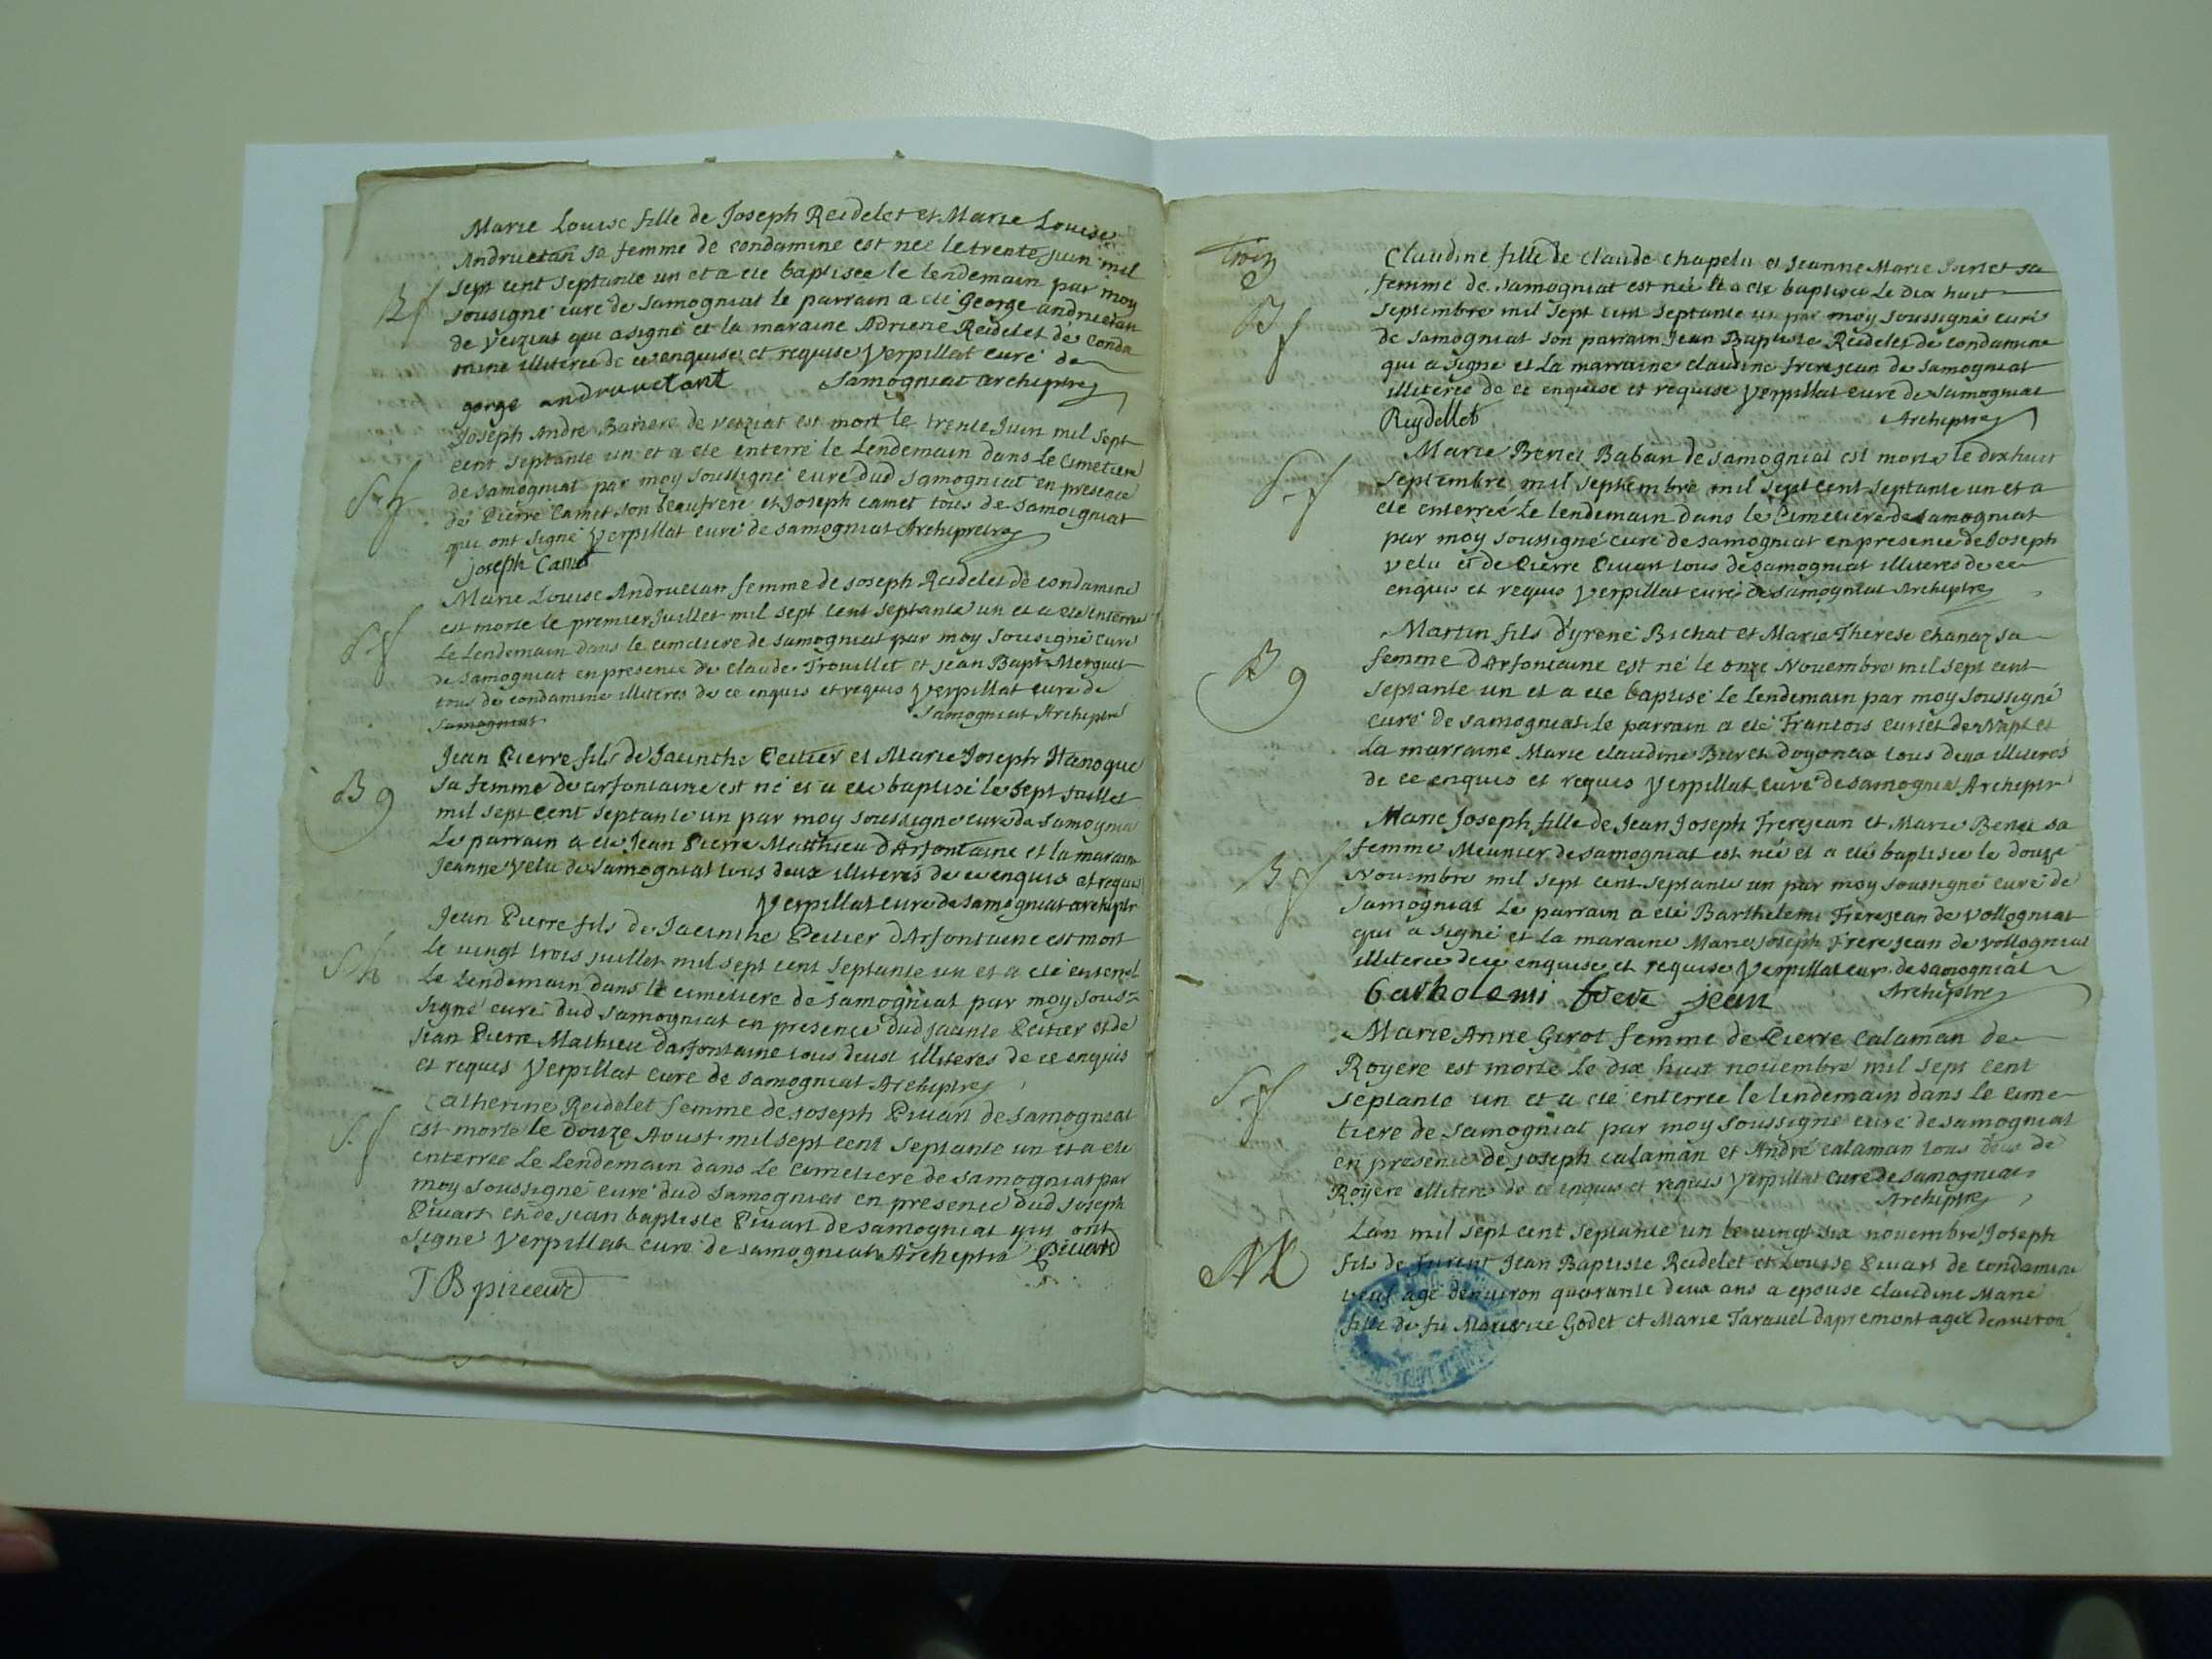 Marie Louise fille de Joseph Reidelet et Marie Louise
Andruetan sa femme de condamine est neé le trente juin mil
sept cent septante un et a eté baptisée le lendemain par moy
Bf
sousigné curé de Samogniat le parrain a eté George andruetan
de veiziat qui a signé et la maraine Adriene Reidelet de Conda
mine illiterée de ce enquise et requise Verpillat curé de
Samogniat archiptre
gorge andruvetant
Joseph André Bariere de veiziat est mort le trente Juin mil sept
cent septante un et a eté enterré le Lendemain dans le Cimetiere
de samogniat par moy soussigné curé dud samogniat en presence
de Pierre Camet son beaufrere et Joseph camet tous de samoigniat
qui ont signé Verpillat curé de samogniat Archipretre
joseph Camet
Marie Louise Andruetan femme de joseph Reidelet de condamine
est morte le premier Juillet mil sept cent septante un et a eté enterré
S f
Le Lendemain dans le cimetiere de samogniat par moy sousigné curé
de samogniat en presence de claude Trouillet et jean Bapt Merguet
tous de condamine illiteres de ce enquis et requis Verpillat curé de
samogniat
Samogniat Archiptre
Jean Pierre fils de Jacinthe Ceitier et Marie Joseph Hanoque
B g
sa femme de arfontaine est né et a eté baptisé le sept juillet
mil sept cent septante un par moy soussigné curé de Samognia
Le parrain a eté Jean Pierre Matthieu d'Arfontaine et la maraine
Jeanne Velu de Samogniat tous deux illiterés de ce enquis et requis
Verpillat curé de Samogniat archiptr
Jean Pierre fils de Jacinthe Peitier d'Arfontaine est mort
le vingt trois juillet mil sept cent septante un et a eté enterré
Le Lendemain dans le cimetiere de samogniat par moy sous=
signé curé dud samogniat en presence dud jacinte Peitier et de
jean Pierre Mathieu d'arfontaine tous deux illiteres de ce enquis
et requis Verpillat curé de samogniat Archiptre
Catherine Reidelet femme de joseph Pivart de samogniat
S. f
est morte le douze Aoust mil sept cent septante un et a eté
enterrée Le Lendemain dans Le cimetiere de samogniat par
moy soussigné curé dud samogniat en presence dud joseph
Pivart et de jean baptiste Pivart de samogniat qui ont
signé Verpillat curé de samogniat Archiptre Pivard
J B
Trois
Claudine fille de claude chapelu et jeanne Marie sa
femme de samogniat est née et a eté baptisée Le dix huit
B f
septembre mil sept cent septante un par moy soussigné curé
de Samogniat son parrain Jean Baptiste Reidelet de condamine
qui a signé et La marraine claudine frerejean de samogniat
illiterée de ce enquise et requise Verpillat curé de samogniat
Reydellet Archiptre
Marie Benei Baban de samogniat est morte le dix huit
S. f
septembre mil septembre mil sept cent septante un et a
eté enterrée Le lendemain dans le Cimetiere de samogniat
par moy soussigné curé de samogniat en presence de Joseph
velu et de Pierre Pivart tous de samogniat illiteres de ce
enquis et requis Verpillat curé de samogniat Archiptre
Martin fils d'yrené Bichat et Marie Therese chanaz sa
B g
femme d'Arfontaine est né le onze Novembre mil sept cent
septante un et a eté baptisé Le Lendemain par moy soussigné
curé de samogniat le parrain a eté Francois curlet de Napt et
La marraine Marie claudine Buret doyonax tous deux illiterés
de ce enquis et requis Verpillat curé de samognia Archiptr
Marie Joseph fille de Jean Joseph Frerejean et Marie Benei sa
femme Meunier de samogniat est neé et a eté baptisée le douze
B f
Novembre mil sept cent septante un par moy soussigné curé de
samogniat Le parrain a eté Barthelemi Frerejean de vollogniat
qui a signé et la maraine Marie joseph frerejean de vollogniat
illiterée de ce enquise et requise Verpillat curé de samogniat
Barholemi frere jean Archiptre
Marie Anne Girot femme de Pierre Calaman de
S. f
Royere est morte le dix huit novembre mil sept cent
septante un et a eté enterrée le lendemain dans le cime
tiere de samogniat par moy soussigné curé de samogniat
en presence de joseph calaman et André calaman tous deux de
Royere illiteres de ce enquis et requis Verpillat curé de samogniat
Archiptre
Lan mil sept cent septante un le vingt six novembre Joseph
fils de furent Jean Baptiste Reidelet et Louise Pivart de condamine
veuf agé denviron quarante deux ans a epousé claudine Marie
fille de fu Maurice Godet et Marie Taravel dapremont agée denviron